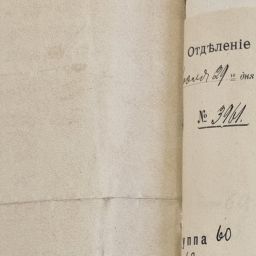 Отдѣленіе
29 го дня
№ 3961.
уппа 60